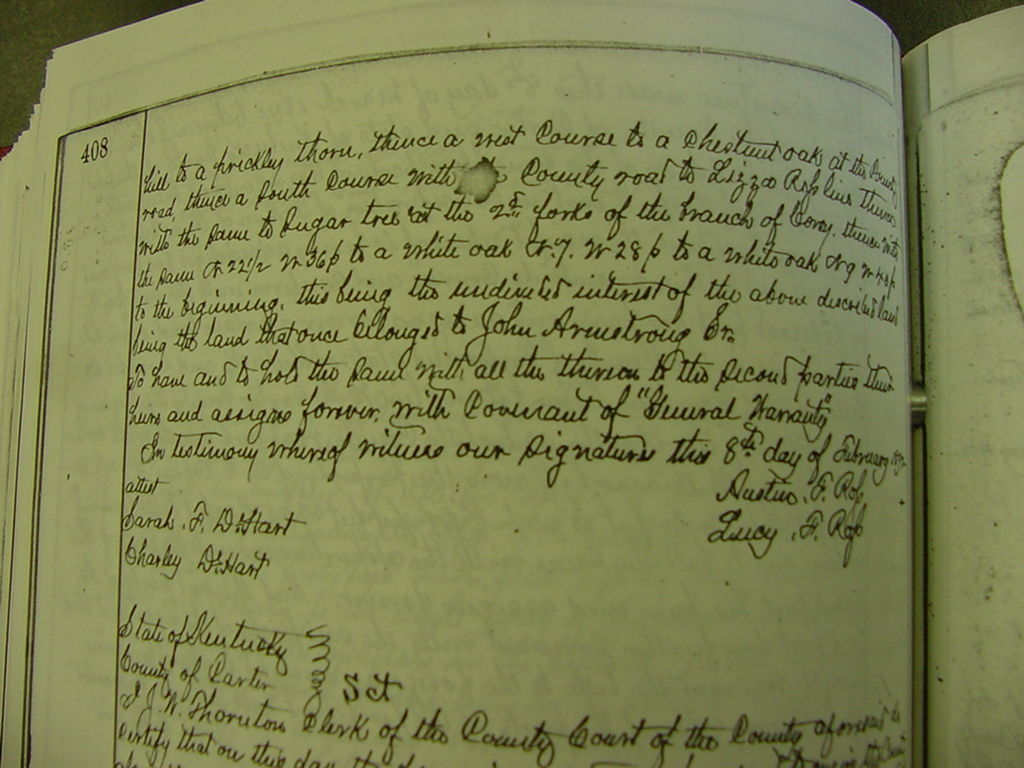 408
hill to a prickley thorn, thence a west Course to a Chestnut oak at the County
road, thence a South Course with County road to Lizza Ross line thence
with the same to Sugar tree at the 2nd forks of the branch of thence with
the same N 22 1/2 W 36 p to a white oak N. 7. W 28 p to a white oak N 9 W
to the beginning. this being the undivided interest of the above described land
being the land that once bellonged to John Armstrong Sr.
To have and to hold the same with all the thereon to the second parties their
heirs and assigns forever. with Covenant of "General Warranty"
In testimony whereof witness our signatures this 8th day of February
attest
Austin. F. Ross
Sarah. F. DeHart
Lucy. F. Ross
Charley DeHart
State of Kentucky
County of Carter
Sct
I J. W. Thornton Clerk of the County Court of the County aforesaid do
Certify that on this day the